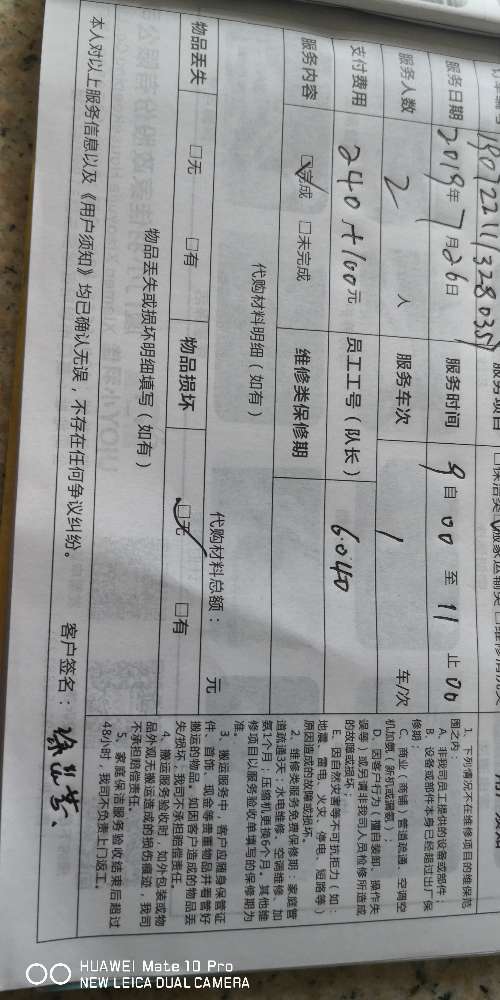 190722111328035
服务日期 2019年7月26日 服务时间 9自00至11止00
服务人数 2 人 服务车次 1 车/次
支付费用 240+100元 员工工号（队长） 6040
服务内容 ☑完成 □未完成 维修类保修期
代购材料明细（如有）
代购材料总额： 元
物品丢失 □无 □有 物品损坏 ☑无 □有
物品丢失或损坏明细填写（如有）
本人对以上服务信息以及《用户须知》均已确认无误，不存在任何争议纠纷。 客户签名：
1、下列情况不在维修项目的维保范
围之内：
A、非我司员工提供的设备或部件；
B、设备或部件本身已经超过出厂保
修期；
C、商业（商铺）管道疏通、空调空
机加氨（新机或漏氨）；
D、因客户行为（擅自装卸、操作失
误等）或另请非我司人员检修所造成
的故障或损坏；
E、因自然灾害等不可抗拒力（如：
地震、雷电、火灾、停电、短路等）
原因造成的故障或损坏。
2、维修类服务免费保修期：家庭管
道疏通3天；水电维修、空调维修、加
氨1个月；压缩机更换6个月。其他维
修项目以服务验收单填写的保修期为
准。
3、搬运服务中，客户应随身保管证
件、首饰、现金等贵重物品并看管好
搬运的物品。如因客户造成的物品丢
失/损坏，我司不承担赔偿责任。
4、搬运服务验收时，如外包装或物
品外观无搬运造成的损伤痕迹，我司
不承担赔偿责任。
5、家庭保洁服务验收结束后超过
48小时，我司不负责上门返工。
HUAWEI Mate 10 Pro
NEW LEICA DUAL CAMERA